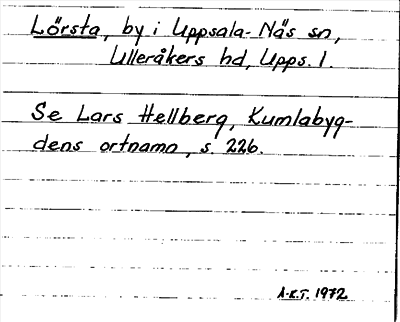 Lörsta, by i Uppsala-Näs sn,
Ulleråkers hd, Upps. l.
Se Lars Hellberg, Kumlabyg-
dens ortnamn, s. 226.
A-R.T. 1972